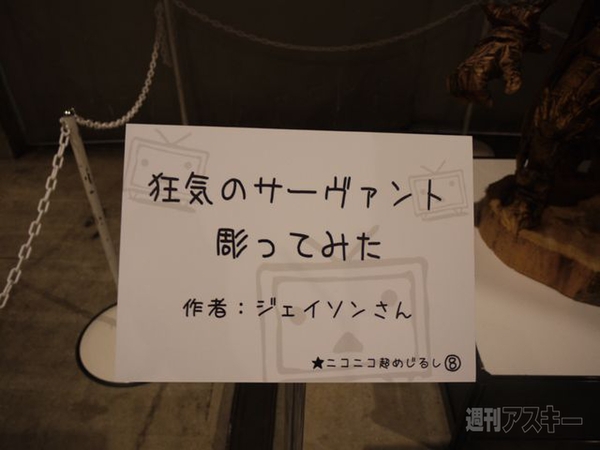 狂気のサーヴァント
彫ってみた
作者：ジェイソンさん
★ニコニコ超めじるし⑧
週刊アスキー